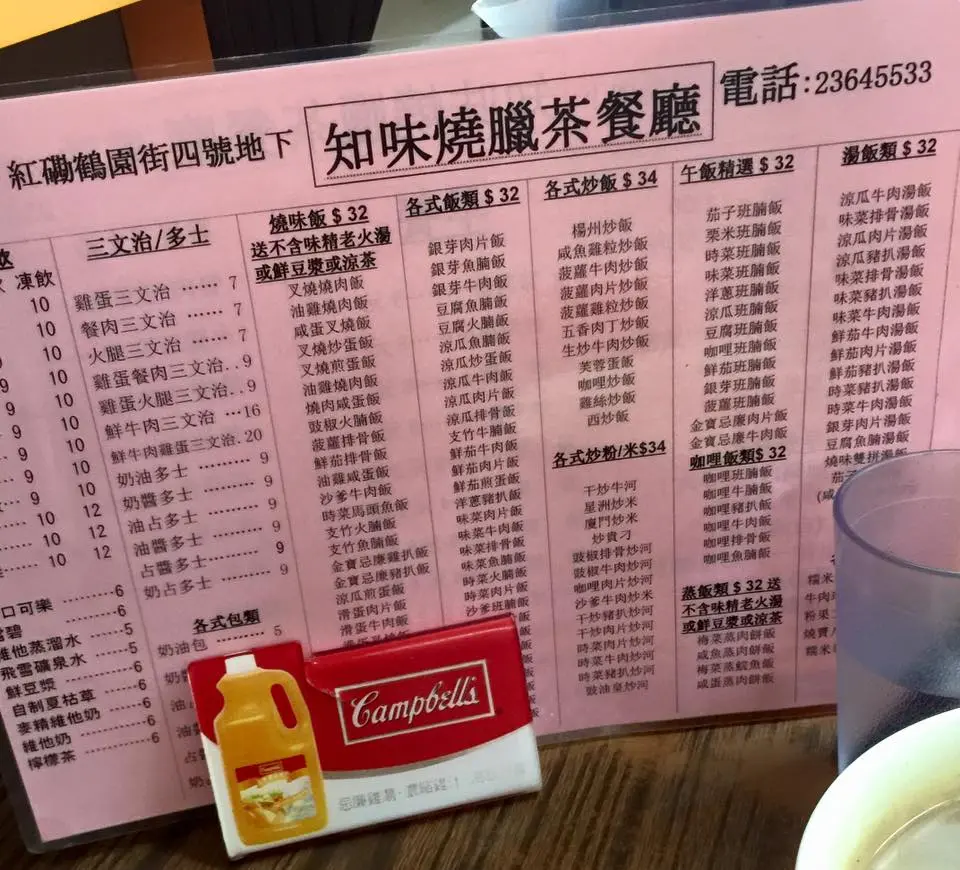 紅磡鶴園街四號地下
知味燒臘茶餐廳
電話:23645533
凍飲
10
10
9 10
9 10
9 10
9 10
9 10
10 12
10 12
可口可樂 6
維他蒸溜水 5
飛雪礦泉水 5
鮮豆漿 6
自制夏枯草 6
麥精維他奶 6
維他奶 6
檸檬茶 6
三文治/多士
雞蛋三文治 ······ 7
餐肉三文治 ······ 7
火腿三文治 ······ 7
雞蛋餐肉三文治..9
雞蛋火腿三文治..9
鮮牛肉三文治 ···16
鮮牛肉雞蛋三文治.20
奶油多士 ········· 9
奶醬多士 ········· 9
油占多士 ········· 9
油醬多士 ········· 9
占醬多士 ········· 9
奶占多士 ········· 9
各式包類
奶油包 ······ 5
燒味飯 $ 32
送不含味精老火湯
或鮮豆漿或涼茶
叉燒燒肉飯
油雞燒肉飯
咸蛋叉燒飯
叉燒炒蛋飯
叉燒煎蛋飯
油雞燒肉飯
燒肉咸蛋飯
豉椒火腩飯
菠蘿排骨飯
鮮茄排骨飯
油雞咸蛋飯
沙爹牛肉飯
時菜馬頭魚飯
支竹火腩飯
支竹魚腩飯
金寶忌廉雞扒飯
金寶忌廉豬扒飯
涼瓜煎蛋飯
滑蛋肉片飯
滑蛋牛肉飯
各式飯類 $ 32
銀芽肉片飯
銀芽魚腩飯
銀芽牛肉飯
豆腐魚腩飯
豆腐火腩飯
涼瓜魚腩飯
涼瓜炒蛋飯
涼瓜牛肉飯
涼瓜肉片飯
涼瓜排骨飯
支竹牛腩飯
鮮茄牛肉飯
鮮茄肉片飯
鮮茄煎蛋飯
洋蔥豬扒飯
味菜肉片飯
味菜牛肉飯
味菜排骨飯
時菜火腩飯
沙爹班腩飯
各式炒飯 $ 34
楊州炒飯
咸魚雞粒炒飯
菠蘿牛肉炒飯
菠蘿肉片炒飯
菠蘿雞粒炒飯
五香肉丁炒飯
生炒牛肉炒飯
芙蓉蛋飯
咖哩炒飯
雞絲炒飯
西炒飯
各式炒粉/米$34
干炒牛河
星洲炒米
廈門炒米
炒貴刁
豉椒排骨炒河
豉椒牛肉炒河
咖哩肉片炒河
沙爹牛肉炒米
干炒豬扒炒河
干炒肉片炒河
時菜肉片炒河
時菜牛肉炒河
時菜豬扒炒河
豉油皇炒河
午飯精選 $ 32
茄子班腩飯
栗米班腩飯
時菜班腩飯
味菜班腩飯
洋蔥班腩飯
涼瓜班腩飯
豆腐班腩飯
咖哩班腩飯
鮮茄班腩飯
銀芽班腩飯
菠蘿班腩飯
金寶忌廉肉片飯
金寶忌廉牛肉飯
咖哩飯類$ 32
咖哩班腩飯
咖哩牛腩飯
咖哩豬扒飯
咖哩牛肉飯
咖哩魚腩飯
蒸飯類 $ 32 送
不含味精老火湯
或鮮豆漿或涼茶
梅菜蒸肉餅飯
咸魚蒸肉餅飯
梅菜蒸鯇魚飯
咸蛋蒸肉餅飯
湯飯類 $ 32
涼瓜牛肉湯飯
味菜排骨湯飯
涼瓜肉片湯飯
涼瓜豬扒湯飯
味菜排骨湯飯
味菜豬扒湯飯
味菜牛肉湯飯
鮮茄牛肉湯飯
鮮茄肉片湯飯
鮮茄豬扒湯飯
時菜豬扒湯飯
時菜牛肉湯飯
銀芽肉片湯飯
豆腐魚腩湯飯
燒味雙拼湯飯
Campbell's
忌廉雞湯·農縮雞汁